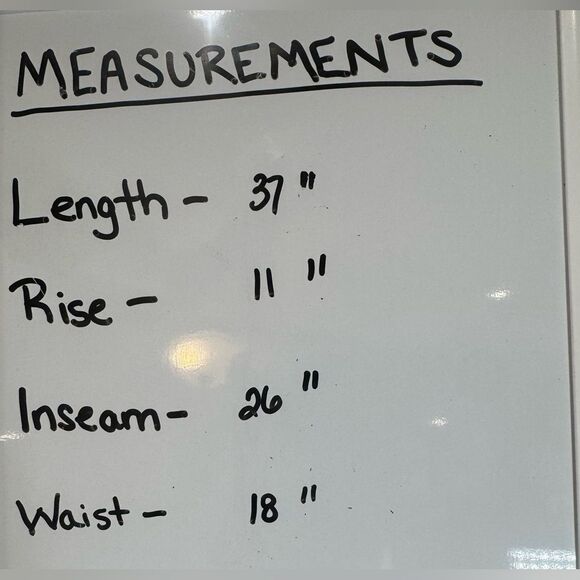 MEASUREMENTS
Length - 37"
Rise - 11"
Inseam - 26"
Waist - 18"